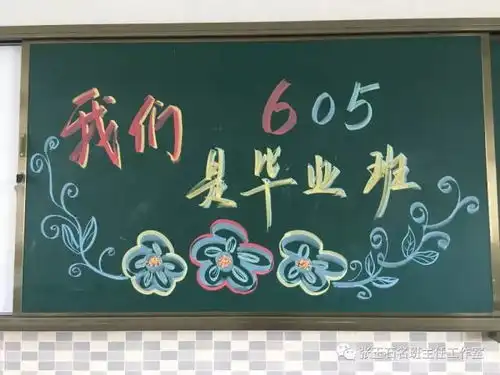 我们 605
是毕业班
张玉石名班主任工作室